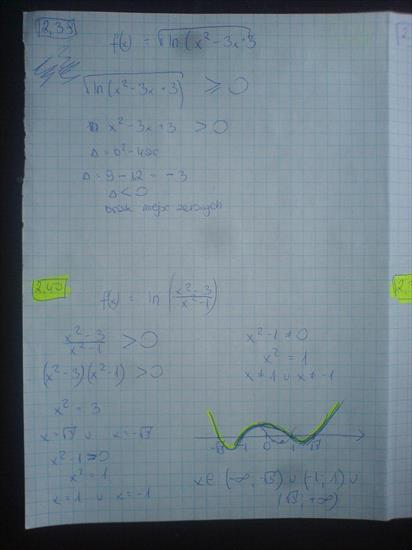 2.39
f(x) = √ln(x²-3x+3
√ln(x²-3x+3) ≥ 0
x²-3x+3 > 0
Δ = b²-4ac
Δ = 9-12 = -3
Δ < 0
brak miejsc zerowych
2.40
f(x) = ln (x²-3/x²-1)
x²-3/x²-1 > 0
x²-1 ≠ 0
(x²-3)(x²-1) > 0
x² = 1
x ≠ 1 ∪ x ≠ -1
x² = 3
x = √3 ∪ x = -√3
-√3 -1 0 1 √3
x²-1 = 0
x² = 1
x = 1 ∪ x = -1
x ∈ (-∞, -√3) ∪ (-1, 1) ∪
(√3, +∞)